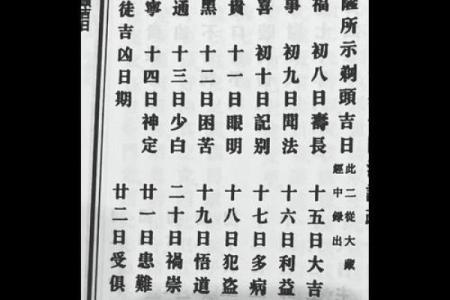 薩所示剃頭吉日 此二從大藏
經中錄出
福 初八日壽長 十五日大吉
事 初九日聞法 十六日利益
喜 初十日記别 十七日多病
貴 十一日眼明 十八日犯盜
黑 十二日困苦 十九日悟道
通 十三日少白 二十日禍崇
寧 十四日神定 廿一日患難
徒吉凶日期 廿二日受俱